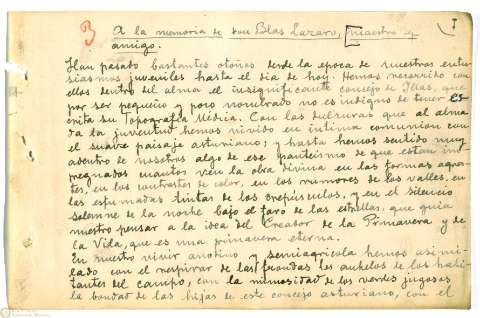 3
I
A la memoria de don Blas Lazaro, maestro y
amigo.
Han pasado bastantes otoños desde la epoca de nuestros entu-
siasmos juveniles hasta el dia de hoy. Hemos recorrido con
ellos dentro del alma el insignificante concejo de Illas, que
por ser pequeño y poco nombrado no es indigno de tener es-
crita su Topografía Médica. Con las dulzuras que al alma
da la juventud hemos vivido en intima comunion con
el suave paisaje asturiano; y hasta hemos sentido muy
adentro de nosotros algo de ese panteismo de que estan im-
pregnados cuantos ven la obra divina en las formas agres-
tes, en los contrastes de color, en los rumores de los valles, en
las esfumadas tintas de los crepúsculos, y en el silencio
solemne de la noche bajo el faro de las estrellas, que guia
nuestro pensar a la idea del Creador de la Primavera y de
la Vida, que es una primavera eterna.
En nuestro vivir anodino y semiagricola hemos asimi-
lado con el respirar de las frondas los anhelos de los habi-
tantes del campo, con la mimosidad de los verdes jugosos
la bondad de las hijas de este concejo asturiano, con el